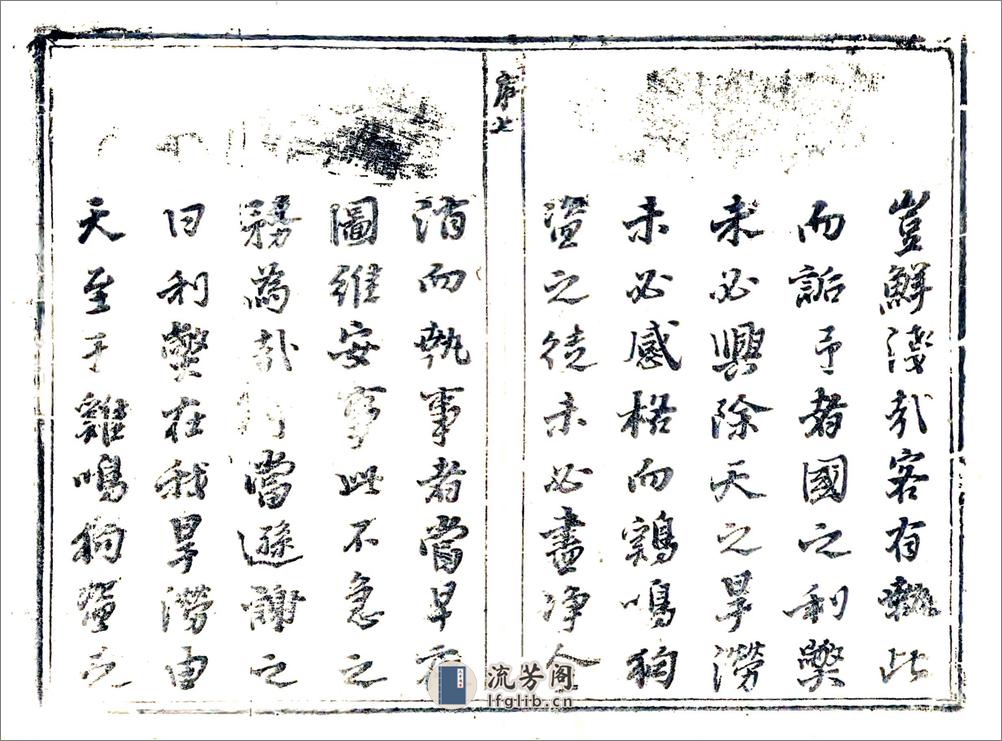 豈鮮淺哉客有執此
而詬予者國之利弊
未必興除天之旱澇
未必感格而鷄鳴狗
盜之徒未必盡净全
序七
消而執事者當早
圖維安事此不急之
務為哉當遜謝之
曰利弊在我旱澇由
天至于雞鳴狗盜之
流芳阁
lfglib.cn